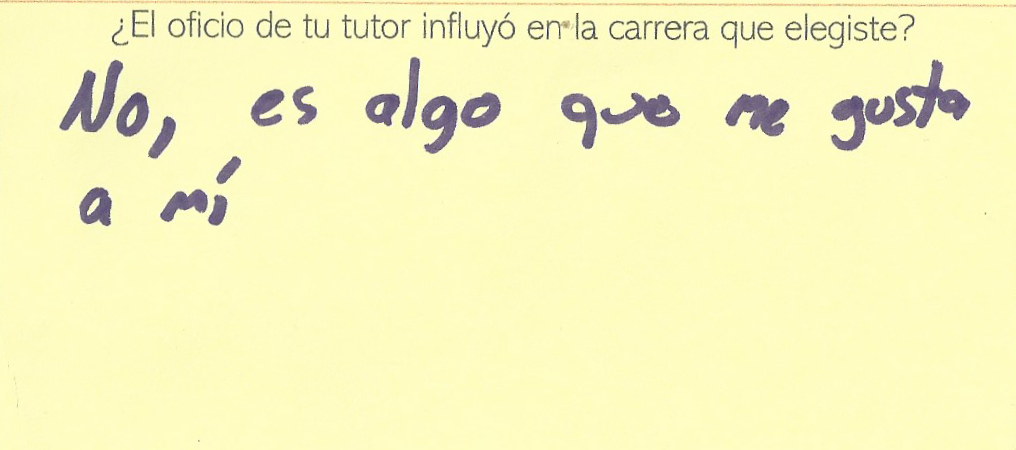 ¿El oficio de tu tutor influyó en la carrera que elegiste?
No, es algo que me gusta
a mí